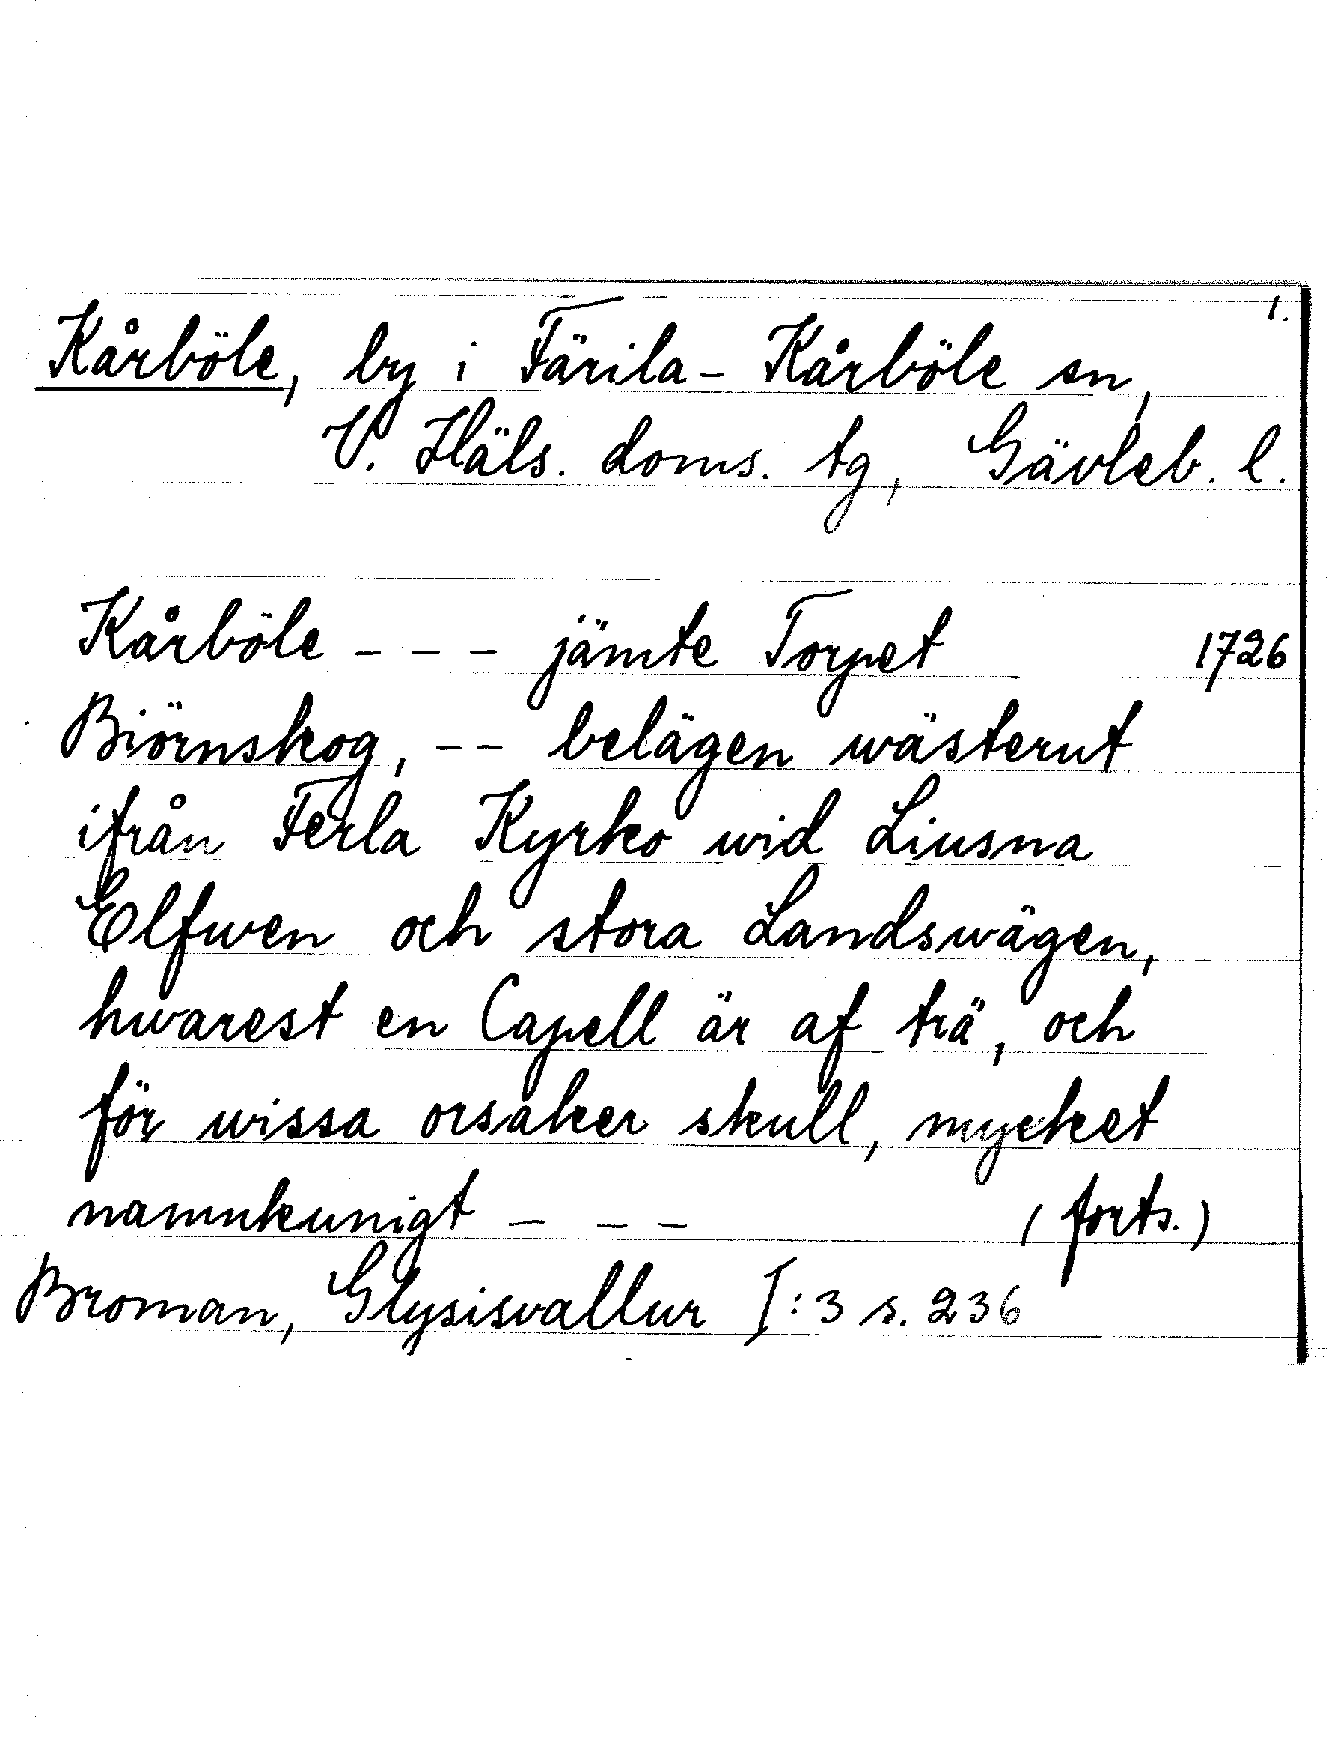 1.
Kårböle, by i Färila-Kårböle sn,
V. Häls. doms. tg, Gävleb. l.
Kårböle - - - jämte Torpet 1726
Biörnskog, -- belägen wästerut
ifrån Ferla Kyrko wid Liusna
Elfwen och stora Landswägen,
hwarest en Capell är af trä, och
för wissa orsaker skull, mycket
namnkunigt - - - (forts.)
Broman, Glysisvallur I:3 s. 236